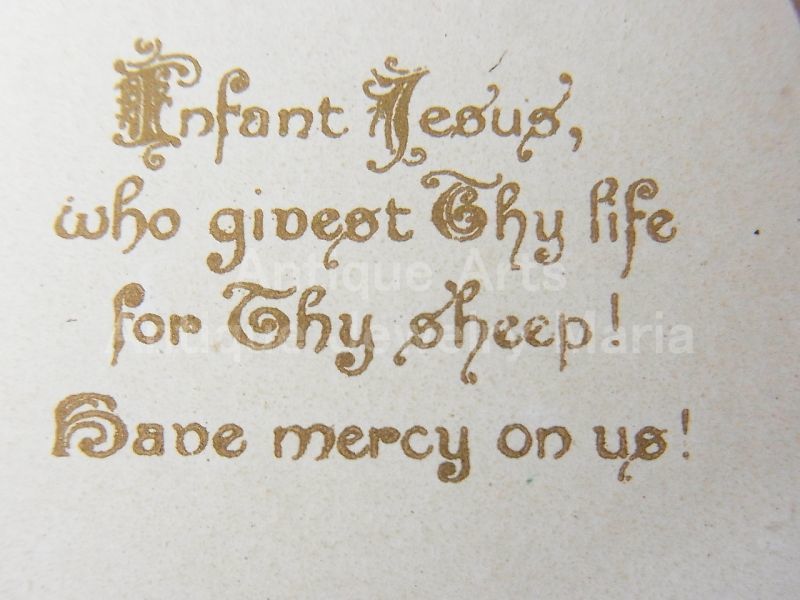 Infant Jesus,
who givest Thy life
for Thy sheep!
Have mercy on us!
Antique Arts
Antique Jewelry Maria